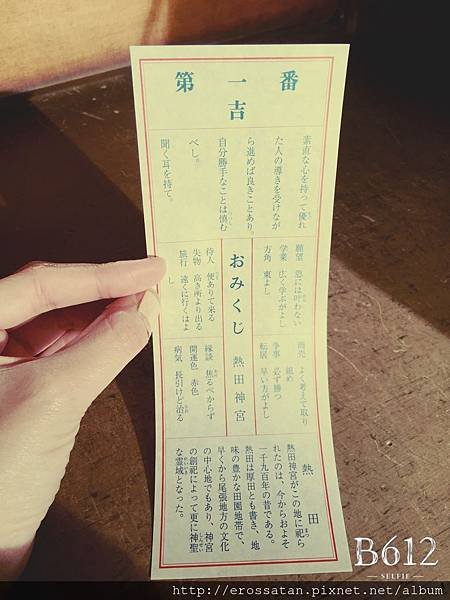 第一番
吉
素直な心を持って優れ
た人の導きを受けなが
ら進めば良きことあり。
自分勝手なことは慎む
べし。
聞く耳を持て。
願望 急には叶わない
学業 広く学ぶがよし
方角 東よし
商売 よく考えて取り
組め
争事 必ず勝つ
転居 早い方がよし
おみくじ 熱田神宮
待人 便ありて来る
失物 高き所より出る
旅行 遠くに行くはよ
し
縁談 焦るべからず
開運色 赤色
病気 長引けど治る
熱田
熱田神宮がこの地に祀ら
れたのは、今からおよそ
一千九百年の昔である。
熱田は厚田とも書き、地
味の豊かな田園地帯で、
早くから尾張地方の文化
の中心地でもあり、神宮
の創祀によって更に神聖
な霊域となった。
B612
SELFIE
http://erossatan.pixnet.net/album